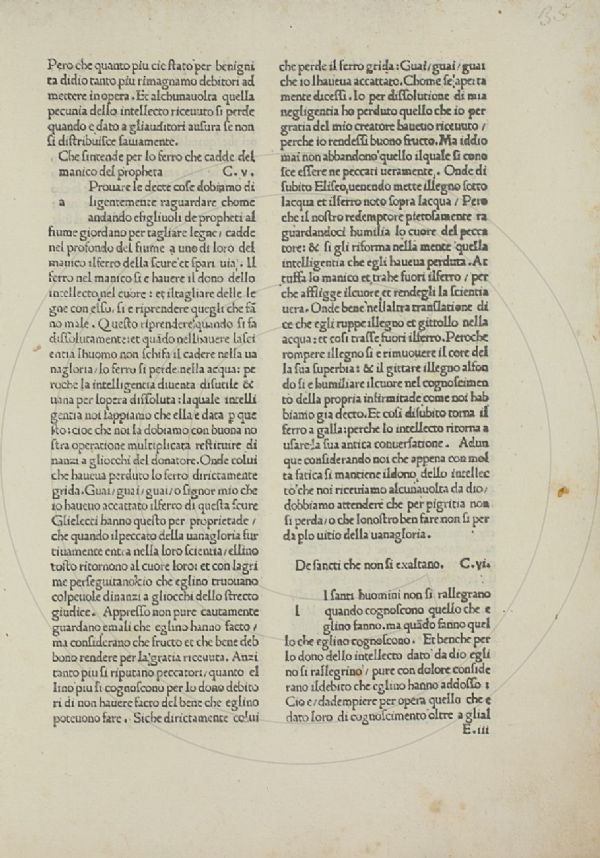 Pero che quanto piu cie stato per benigni
ta didio tanto piu rimagnamo debitori ad
mettere in opera. Et alchunauolta quella
pecunia dello intellecto riceuuto si perde
quando e dato a gliauditori ausura se non
si distribuisce sauiamente.
Che sintende per lo ferro che cadde del
manico del propheta C. v.
Prouare le decte cose dobiamo di
a ligentemente raguardare chome
andando efigliuoli de propheti al
fiume giordano per tagliare legne/ cadde
nel profondo del fiume a uno di loro del
manico ilferro della scure et spari uia. Il
ferro nel manico si e hauere il dono dello
intellecto nel cuore: et iltagliare delle le
gne con esso, si e riprendere quegli che fã
no male. Questo riprendere quando si fa
dissolutamente: et quãdo nellhauere lasci
entia lhuomo non schifa il cadere nella ua
nagloria/ lo ferro si perde nella acqua: pe
roche la intelligentia diuenta disutile &
uana per lopera dissoluta: laquale intelli
gentia noi sappiamo che ella e data p que
sto: cioe che noi la dobiamo con buona no
stra operatione multiplicata restituire di
nanzi a gliocchi del donatore. Onde colui
che haueua perduto lo ferro dirictamente
grida. Guai/ guai/ guai/ o signor mio che
io haueuo accattato ilferro di questa scure
Glielecti hanno questo per proprietade/
che quando ilpeccato della uanagloria fur
tiuamente entra nella loro scientia/ ellino
tosto ritornono al cuore loro: et con lagri
me perseguitano cio che eglino truouano
colpeuole dinanzi a gliocchi dello strecto
giudice. Appresso non pure cautamente
guardano emali che eglino hanno facto/
ma considerano che fructo et che bene deb
bono rendere per la gratia riceuuta. Anzi
tanto piu si riputano peccatori/ quanto el
lino piu si cognoscono per lo dono debito
ri di non hauere facto del bene che eglino
poteuono fare. Siche dirictamente colui
che perde il ferro grida: Guai/ guai/ guai
che io lhaueua accattato. Chome se aperta
mente dicessi. Io per dissolutione di mia
negligentia ho perduto quello che io per
gratia del mio creatore haueuo riceuuto/
perche io rendessi buono fructo. Ma iddio
mai non abbandono quello ilquale si cono
sce essere ne peccati ueramente. Onde di
subito Eliseo, uenendo mette illegno sotto
lacqua et ilferro noto sopra lacqua/ Pero
che il nostro redemptore pietosamente ra
guardandoci humilia lo cuore del pecca
tore: & si gli riforma nella mente quella
intelligentia che egli haueua perduta. At
tuffa lo manico et trahe fuori ilferro/ per
che affligge ilcuore et rendegli la scientia
uera. Onde bene nellaltra translatione di
ce che egli ruppe illegno et gittollo nella
acqua: et cosi trasse fuori ilferro. Peroche
rompere illegno si e rimuouere il core del
la sua superbia: & il gittare illegno alfon
do si e humiliare ilcuore nel cognoscimen
to della propria infirmitade come noi hab
biamo gia decto. Et cosi disubito torna il
ferro a galla: perche lo intellecto ritorna a
usare la sua antica conuersatione. Adun
que considerando noi che appena con mol
ta fatica si mantiene ildono dello intellec
to che noi riceuiamo alcunauolta da dio/
dobbiamo attendere che per pigritia non
si perda/ o che lonostro ben fare non si per
da p lo uitio della uanagloria.
De sancti che non si exaltano. C. vi.
I santi huomini non si rallegrano
l quando cognoscono quello che e
glino fanno. ma quãdo fanno quel
lo che eglino cognoscono. Et benche per
lo dono dello intellecto dato da dio egli
no si rallegrino/ pure con dolore conside
rano ildebito che eglino hanno addosso:
Cio e/ dadempiere per opera quello che e
dato loro di cognoscimento oltre a glial
E. iii